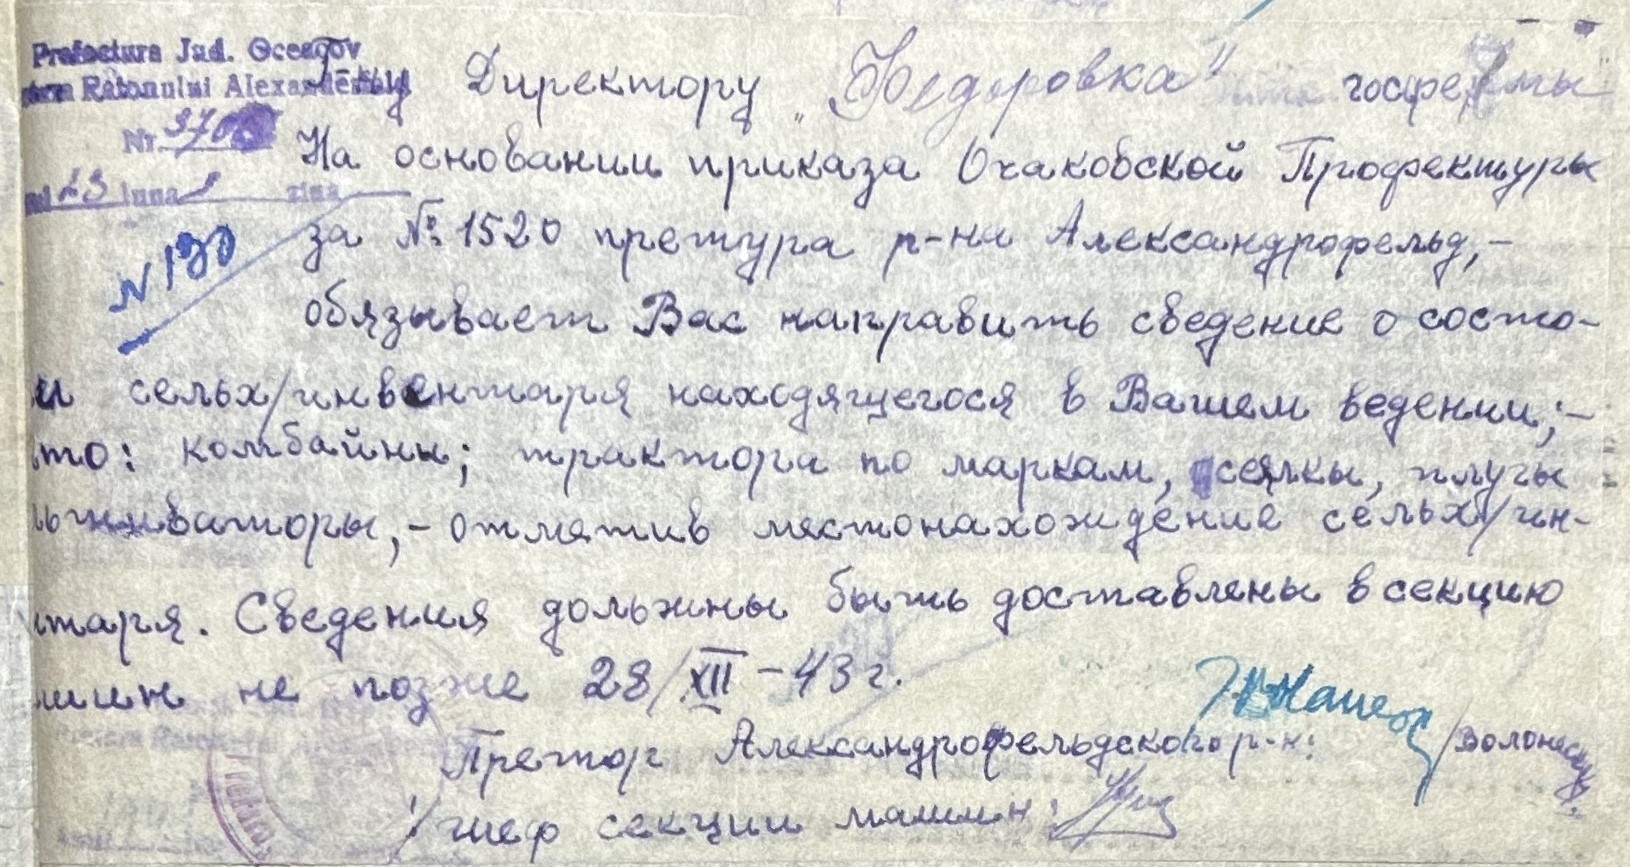 Prefectura Jud. Oceacov
Raionului Alexanderfeld
Г-ну Директору „Федоровка" госфермы
Nr. 370
На основании приказа Очаковской Профектуры
23 luna
за №: 1520 претура р-на Александрофельд,-
N 130
обязывает Вас направить сведение о состо-
и сельх/инвентаря находящегося в Вашем ведении,;-
то: комбайны; трактора по маркам, сеялки, плуги
льтиваторы,- отметив местонахождение сельх/ин-
нтаря. Сведения должны быть доставлены в секцию
ашин не позже 28/XII-43 г.
Претор Александрофельдского р-н:
/шеф секции машин: